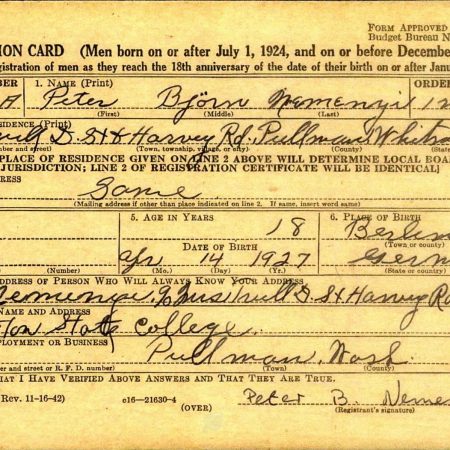 FORM APPROVED
Budget Bureau N
ION CARD (Men born on or after July 1, 1924, and on or before December
gistration of men as they reach the 18th anniversary of the date of their birth on or after Janu
BER 1. NAME (Print) ORDE
A Peter Björn Nemenyi 12
(First) (Middle) (Last)
ESIDENCE (Print)
D St & Harvey Rd. Pullman, Whitm
mber and street) (Town, township, village, or city) (County) (State
PLACE OF RESIDENCE GIVEN ON LINE 2 ABOVE WILL DETERMINE LOCAL BOA
JURISDICTION; LINE 2 OF REGISTRATION CERTIFICATE WILL BE IDENTICAL]
RESS
Same
[Mailing address if other than place indicated on line 2. If same, insert word same]
5. AGE IN YEARS 6. PLACE OF BIRTH
18 Berlin
DATE OF BIRTH (Town or county)
Apr 14 1927 Germ
(Number) (Mo.) (Day) (Yr.) (State or country)
DDRESS OF PERSON WHO WILL ALWAYS KNOW YOUR ADDRESS
D St Harvey Rd
NAME AND ADDRESS
ton State College
MPLOYMENT OR BUSINESS
Pullman, Wash.
er and street or R. F. D. number) (Town) (County) (State
AT I HAVE VERIFIED ABOVE ANSWERS AND THAT THEY ARE TRUE.
Rev. 11-16-42) c16—21630-4 (OVER) Peter B. Neme
(Registrant's signature)